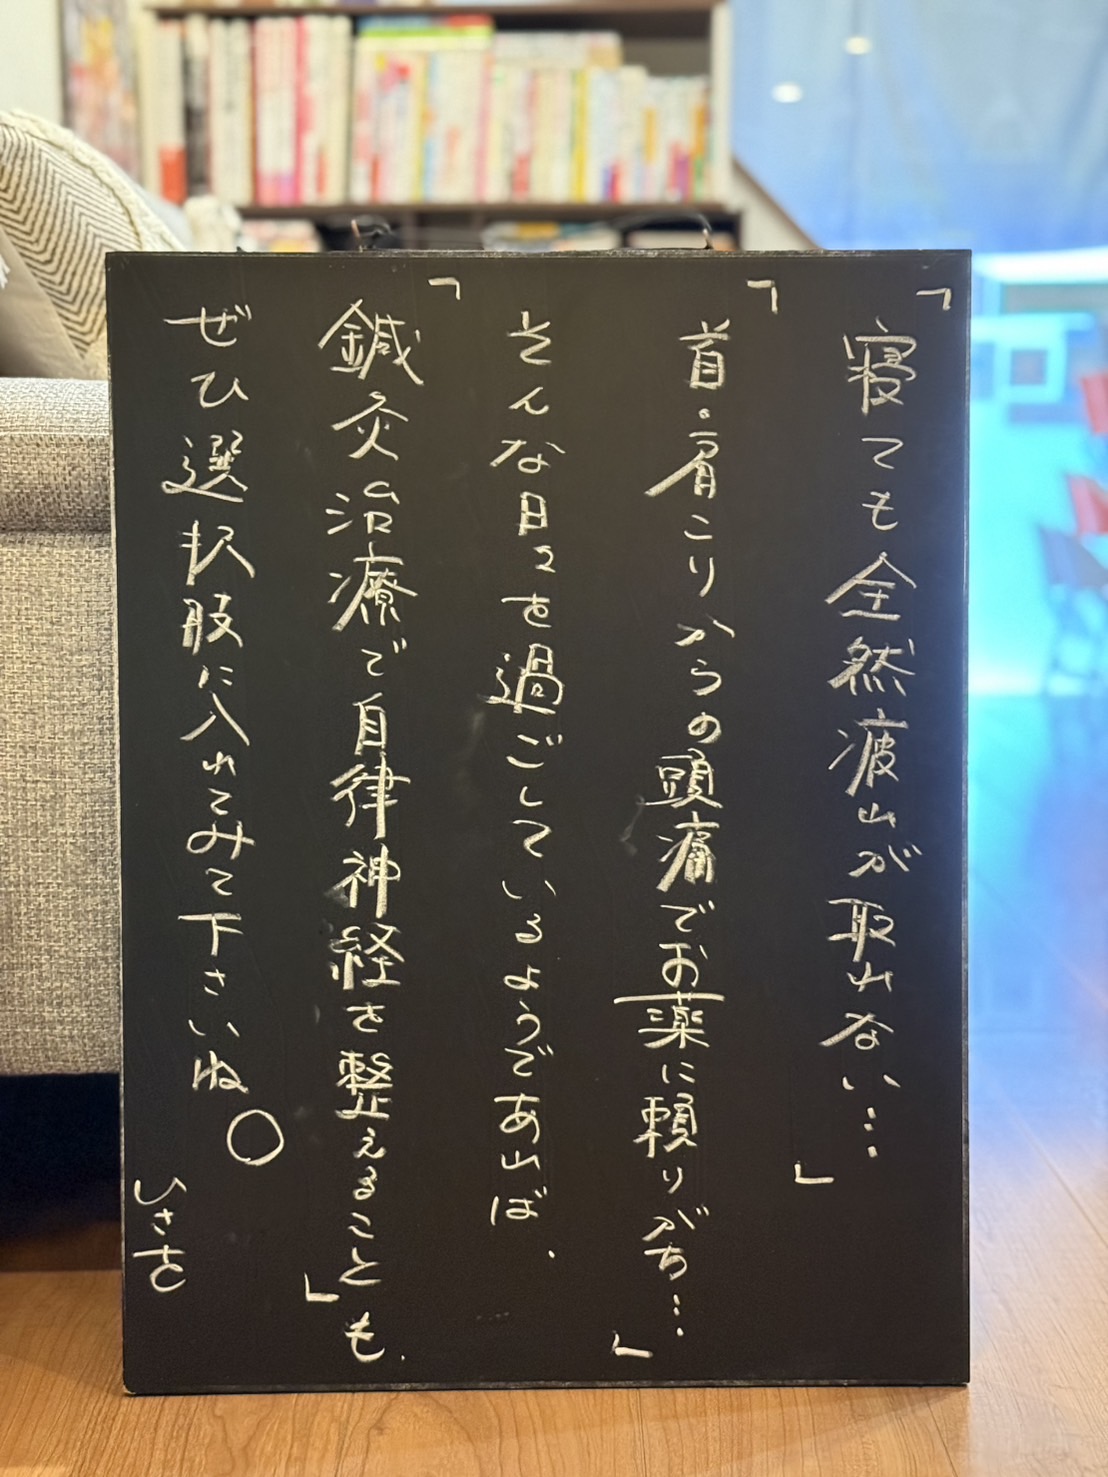 「寝ても全然疲れが取れない…」
「首・肩こりからの頭痛でお薬に頼りがち…」
そんな日々を過ごしているようであれば、
「鍼灸治療で自律神経を整えること」も、
ぜひ選択肢に入れてみて下さいね○
ひさを